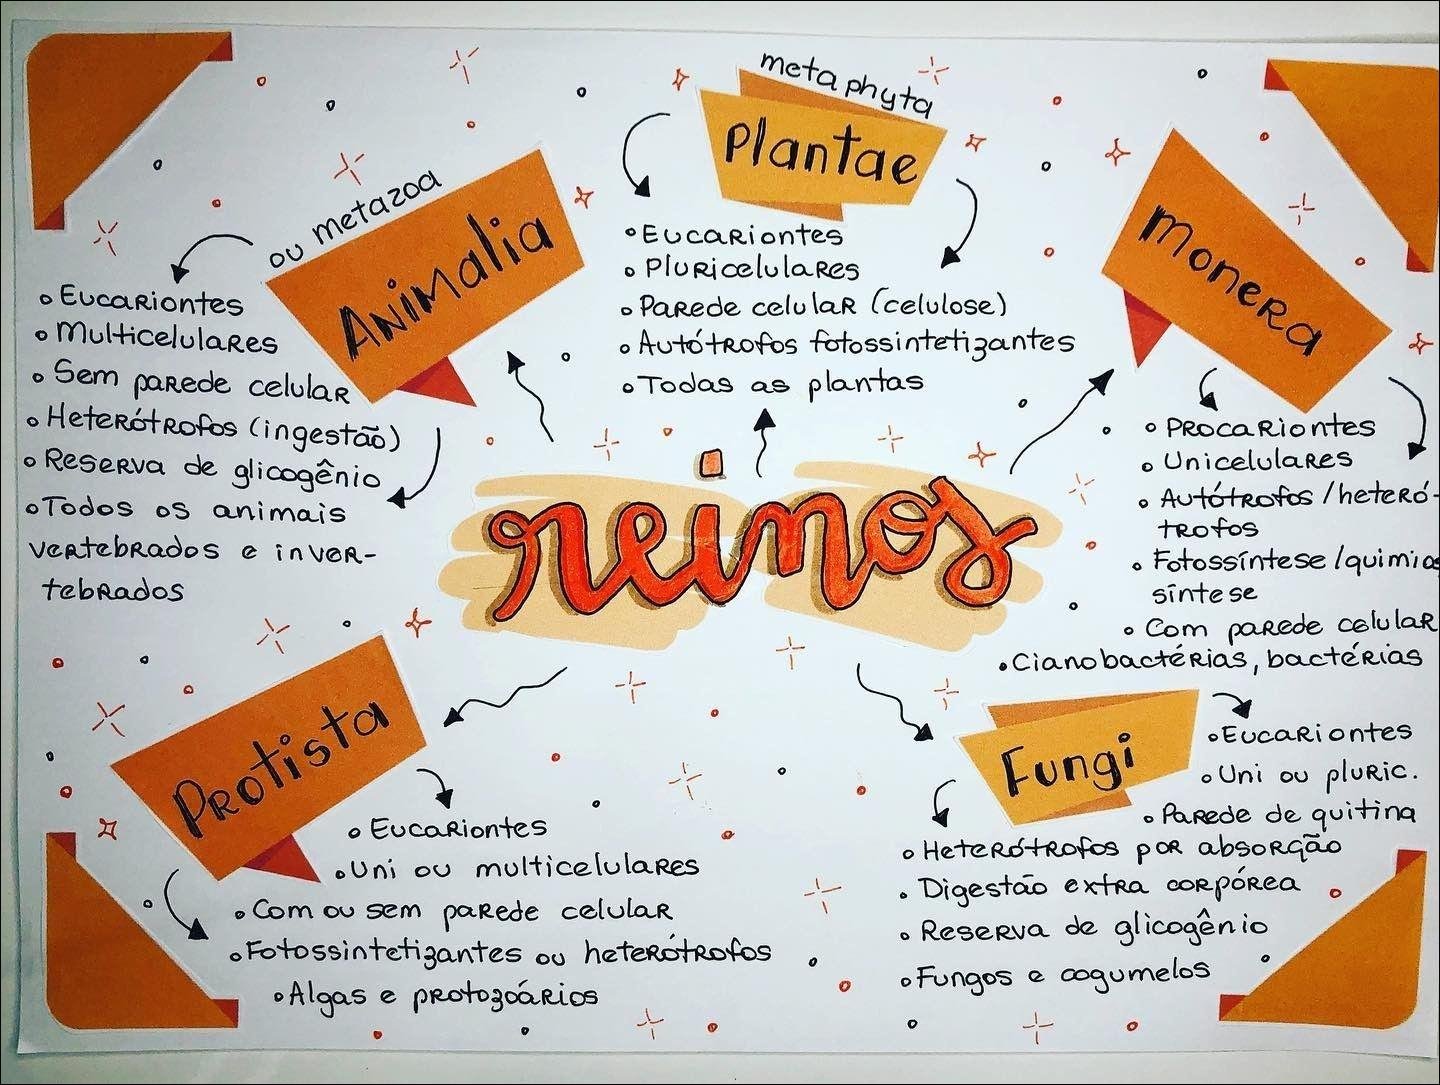 reinos
ou metazoa
Animalia
Eucariontes
Multicelulares
Sem parede celular
Heterótrofos (ingestão)
Reserva de glicogênio
Todos os animais
vertebrados e inver-
tebrados
metaphyta
Plantae
Eucariontes
Pluricelulares
Parede celular (celulose)
Autótrofos fotossintetizantes
Todas as plantas
Monera
Procariontes
Unicelulares
Autótrofos/heteró-
trofos
Fotossíntese/quimios
síntese
Com parede celular
Cianobactérias, bactérias
Protista
Eucariontes
Uni ou multicelulares
Com ou sem parede celular
Fotossintetizantes ou heterótrofos
Algas e protozoários
Fungi
Eucariontes
Uni ou pluric.
Parede de quitina
Heterótrofos por absorção
Digestão extra corpórea
Reserva de glicogênio
Fungos e cogumelos